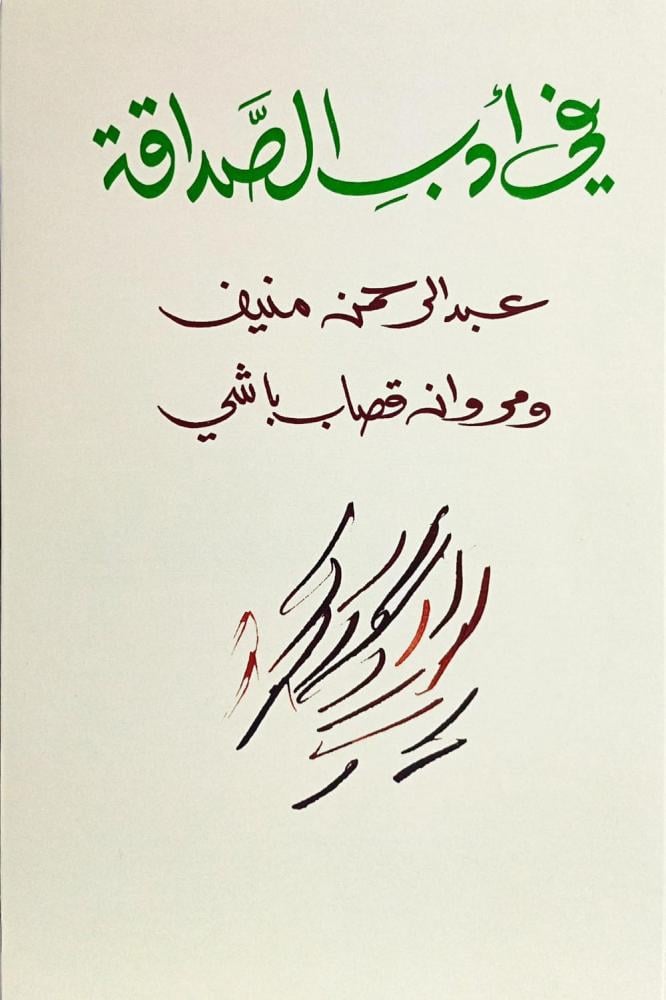 في أدبِ الصَّداقة
عبدالرحمن منيف
ومروان قصاب باشي